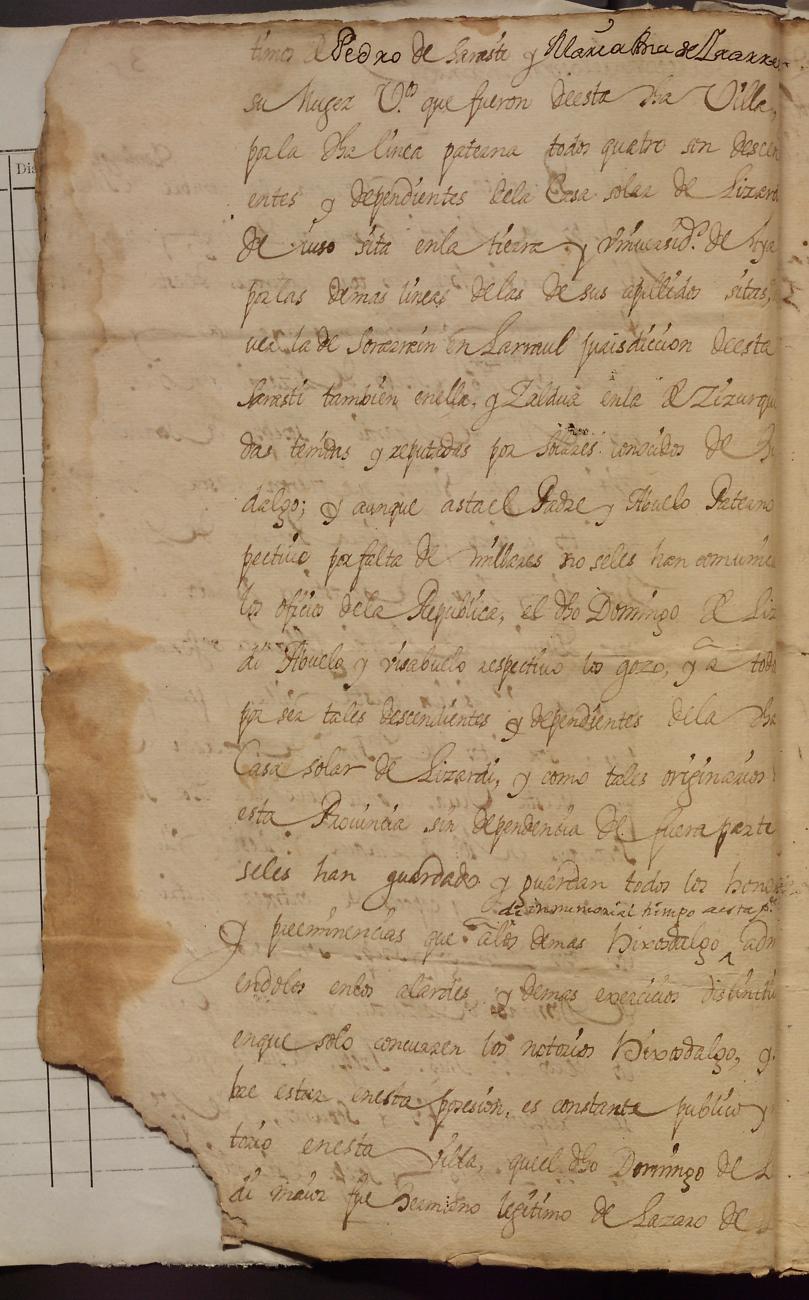 timos de Pedro de Sarasti y Maria Ana de Izarra
su Muger V.os que fueron deesta dha Villa,
por la dha linea paterna todos quatro son descen
entes y dependientes dela Casa solar de Lizard
de iuso sita enla tierra y Vniuersid.d de
por las demas lineas delas de sus apellidos sitas,
uea la de Sorarrain en Larraul jurisdiccion deesta
Sarasti tambien enella, y Zaldua enla de Zizurqui
das tenidas y reputadas por Solares conocidos de
dalgo; y aunque astael Padre y Abuelo Paterno
pectiuo por falta de millares no seles han comunic
los oficios dela Republica, el dho Domingo de Liz
di Abuelo y visabuelo respectiuo los gozo, y a todo
por ser tales descendientes y dependientes dela dha
Casa solar de Lizardi, y como tales originarios
esta Prouincia sin dependencia de fuera parte
seles han guardado y guardan todos los hono
de inmemorial tiempo aesta p.te
y preeminencias que alos demas hixosdalgo adm
endolos enlos alardes y demas exercicios distinctiu
enque solo concurren los notorios hixosdalgo, y
bre estar enesta posesion, es constante publico y
torio enesta Villa, queel dho Domingo de L
di maior fue hermano legitimo de Lazaro de